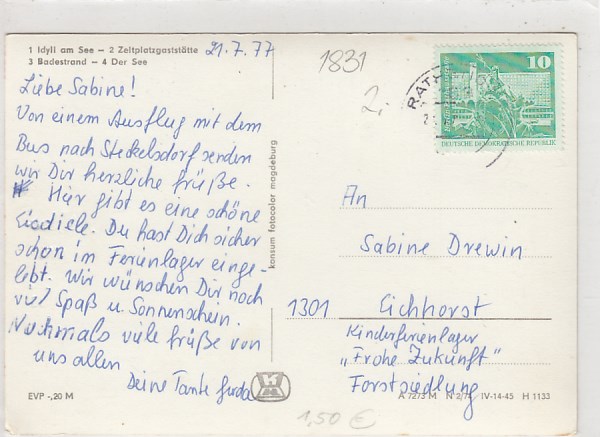 1 Idyll am See – 2 Zeltplatzgaststätte
3 Badestrand – 4 Der See
21.7.77
Liebe Sabine!
Von einem Ausflug mit dem
Bus nach Steckelsdorf senden
wir Dir herzliche Grüße.
Hier gibt es eine schöne
Eisdiele. Du hast Dich sicher
schon im Ferienlager einge-
lebt. Wir wünschen Dir noch
viel Spaß u. Sonnenschein.
Nochmals viele Grüße von
uns allen
Deine Tante Gerda
EVP -,20 M
konsum fotocolor magdeburg
1831
2,-
RATH
10
DEUTSCHE DEMOKRATISCHE REPUBLIK
An
Sabine Drewin
1301 Eichhorst
Kinderferienlager
„Frohe Zukunft"
Forstsiedlung
A 72/3 M N 2/74 IV-14-45 H 1133
1,50 €